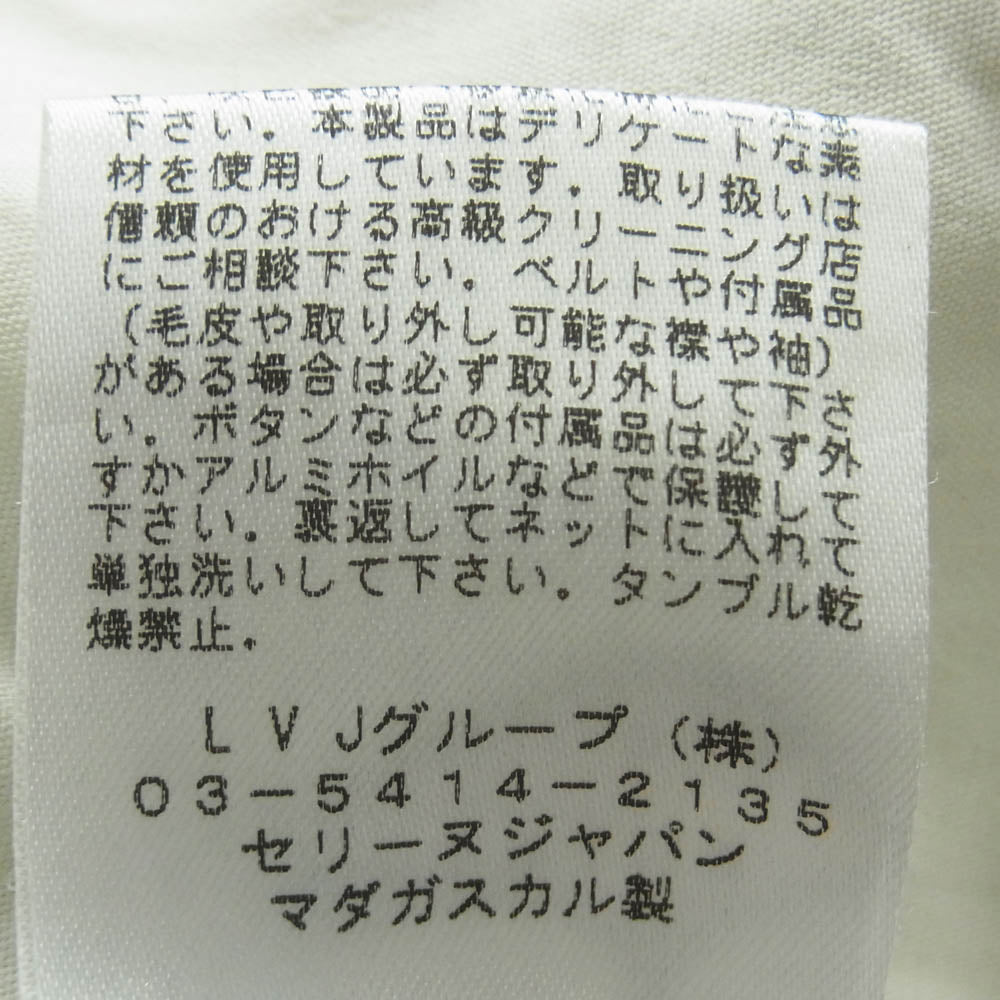 下さい。本製品はデリケートな素
材を使用しています。取り扱いは
信頼のおける高級クリーニング店
にご相談下さい。ベルトや付属品
（毛皮や取り外し可能な襟や袖）
がある場合は必ず取り外して下さ
い。ボタンなどの付属品は必ず外
すかアルミホイルなどで保護して
下さい。裏返してネットに入れて
単独洗いして下さい。タンブル乾
燥禁止.
LVJグループ（株）
03-5414-2135
セリーヌジャパン
マダガスカル製